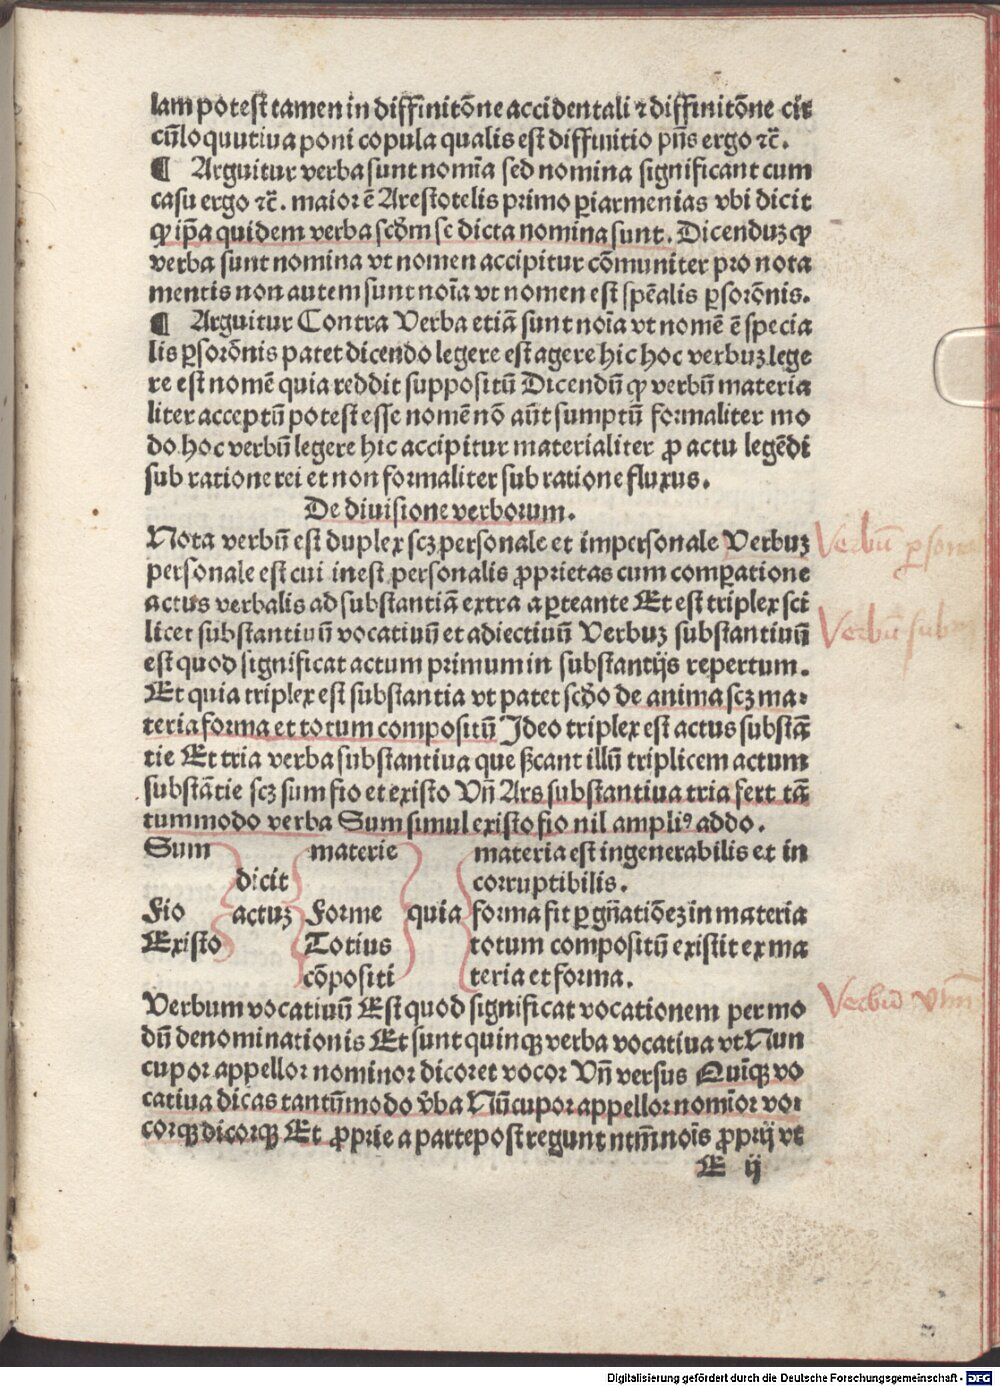 lam potest tamen in diffinitōne accidentali ⁊ diffinitōne cir
cūloquutiua poni copula qualis est diffinitio pn̄s ergo ⁊c̄.
¶ Arguitur verba sunt nomīa sed nomina significant cum
casu ergo ⁊c̄. maior ē Arestotelis primo ꝑiarmenias vbi dicit
ꝙ ip̄a quidem verba scd̄m se dicta nomina sunt. Dicenduꝫ ꝙ
verba sunt nomina vt nomen accipitur cōmuniter pro nota
mentis non autem sunt noīa vt nomen est spēalis ꝑs orōnis.
¶ Arguitur Contra Verba etiā sunt noīa vt nomē ē specia
lis ꝑs orōnis patet dicendo legere est agere hic hoc verbuꝫ lege
re est nomē quia reddit suppositū Dicendū ꝙ verbū materia
liter acceptū potest esse nomē nō aūt sumptū formaliter mo
do hoc verbū legere hic accipitur materialiter ꝓ actu legēdi
sub ratione rei et non formaliter sub ratione fluxus.
De diuisione verborum.
Nota verbū est duplex scꝫ personale et impersonale Verbuꝫ
personale est cui inest personalis ꝓprietas cum comꝑatione
actus verbalis ad substantiā extra a ꝑte ante Et est triplex sci
licet substantiuū vocatiuū et adiectiuū Verbuꝫ substantiuū
est quod significat actum primum in substantijs repertum.
Et quia triplex est substantia vt patet scd̄o de anima scꝫ ma-
teria forma et totum compositū Ideo triplex est actus substā
tie Et tria verba substantiua que sc̄ant illū triplicem actum
substātie scꝫ sum fio et existo Vn̄ Ars substantiua tria fert tā
tummodo verba Sum simul existo fio nil ampliꝰ addo.
Sum materie materia est ingenerabilis et in
dicit corruptibilis.
Fio actuꝫ Forme quia forma fit ꝑ gn̄atiōeꝫ in materia
Existo Totius totum compositū existit ex ma
cōpositi teria et forma.
Verbum vocatiuū Est quod significat vocationem per mo
dū denominationis Et sunt quinqꝫ verba vocatiua vt Nun
cupor appellor nominor dicor et vocor Vn̄ versus Quīqꝫ vo
catiua dicas tantūmodo v̄ba Nūcupor appellor nomīor vo-
corqꝫ dicorqꝫ Et ꝓprie a parte post regunt ntm̄ noīs ꝓprij vt
E ij
Verbū ꝑsona
Verbū sub
Verbū
Digitalisierung gefördert durch die Deutsche Forschungsgemeinschaft - DFG